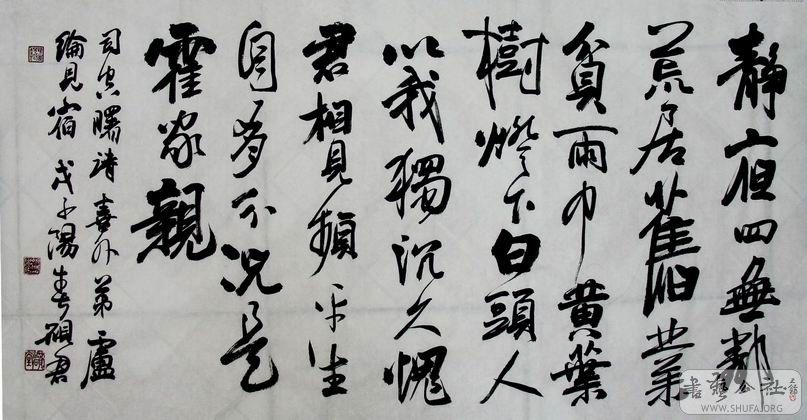 靜夜四無鄰
荒居舊業
貧雨中黃葉
樹燈下白頭人
以我獨沉久愧
君相見頻平生
自有分況是
霍家親
司空曙詩喜外弟盧
綸見宿戊子陽春君
書藝公社
WWW.SHUFA.ORG